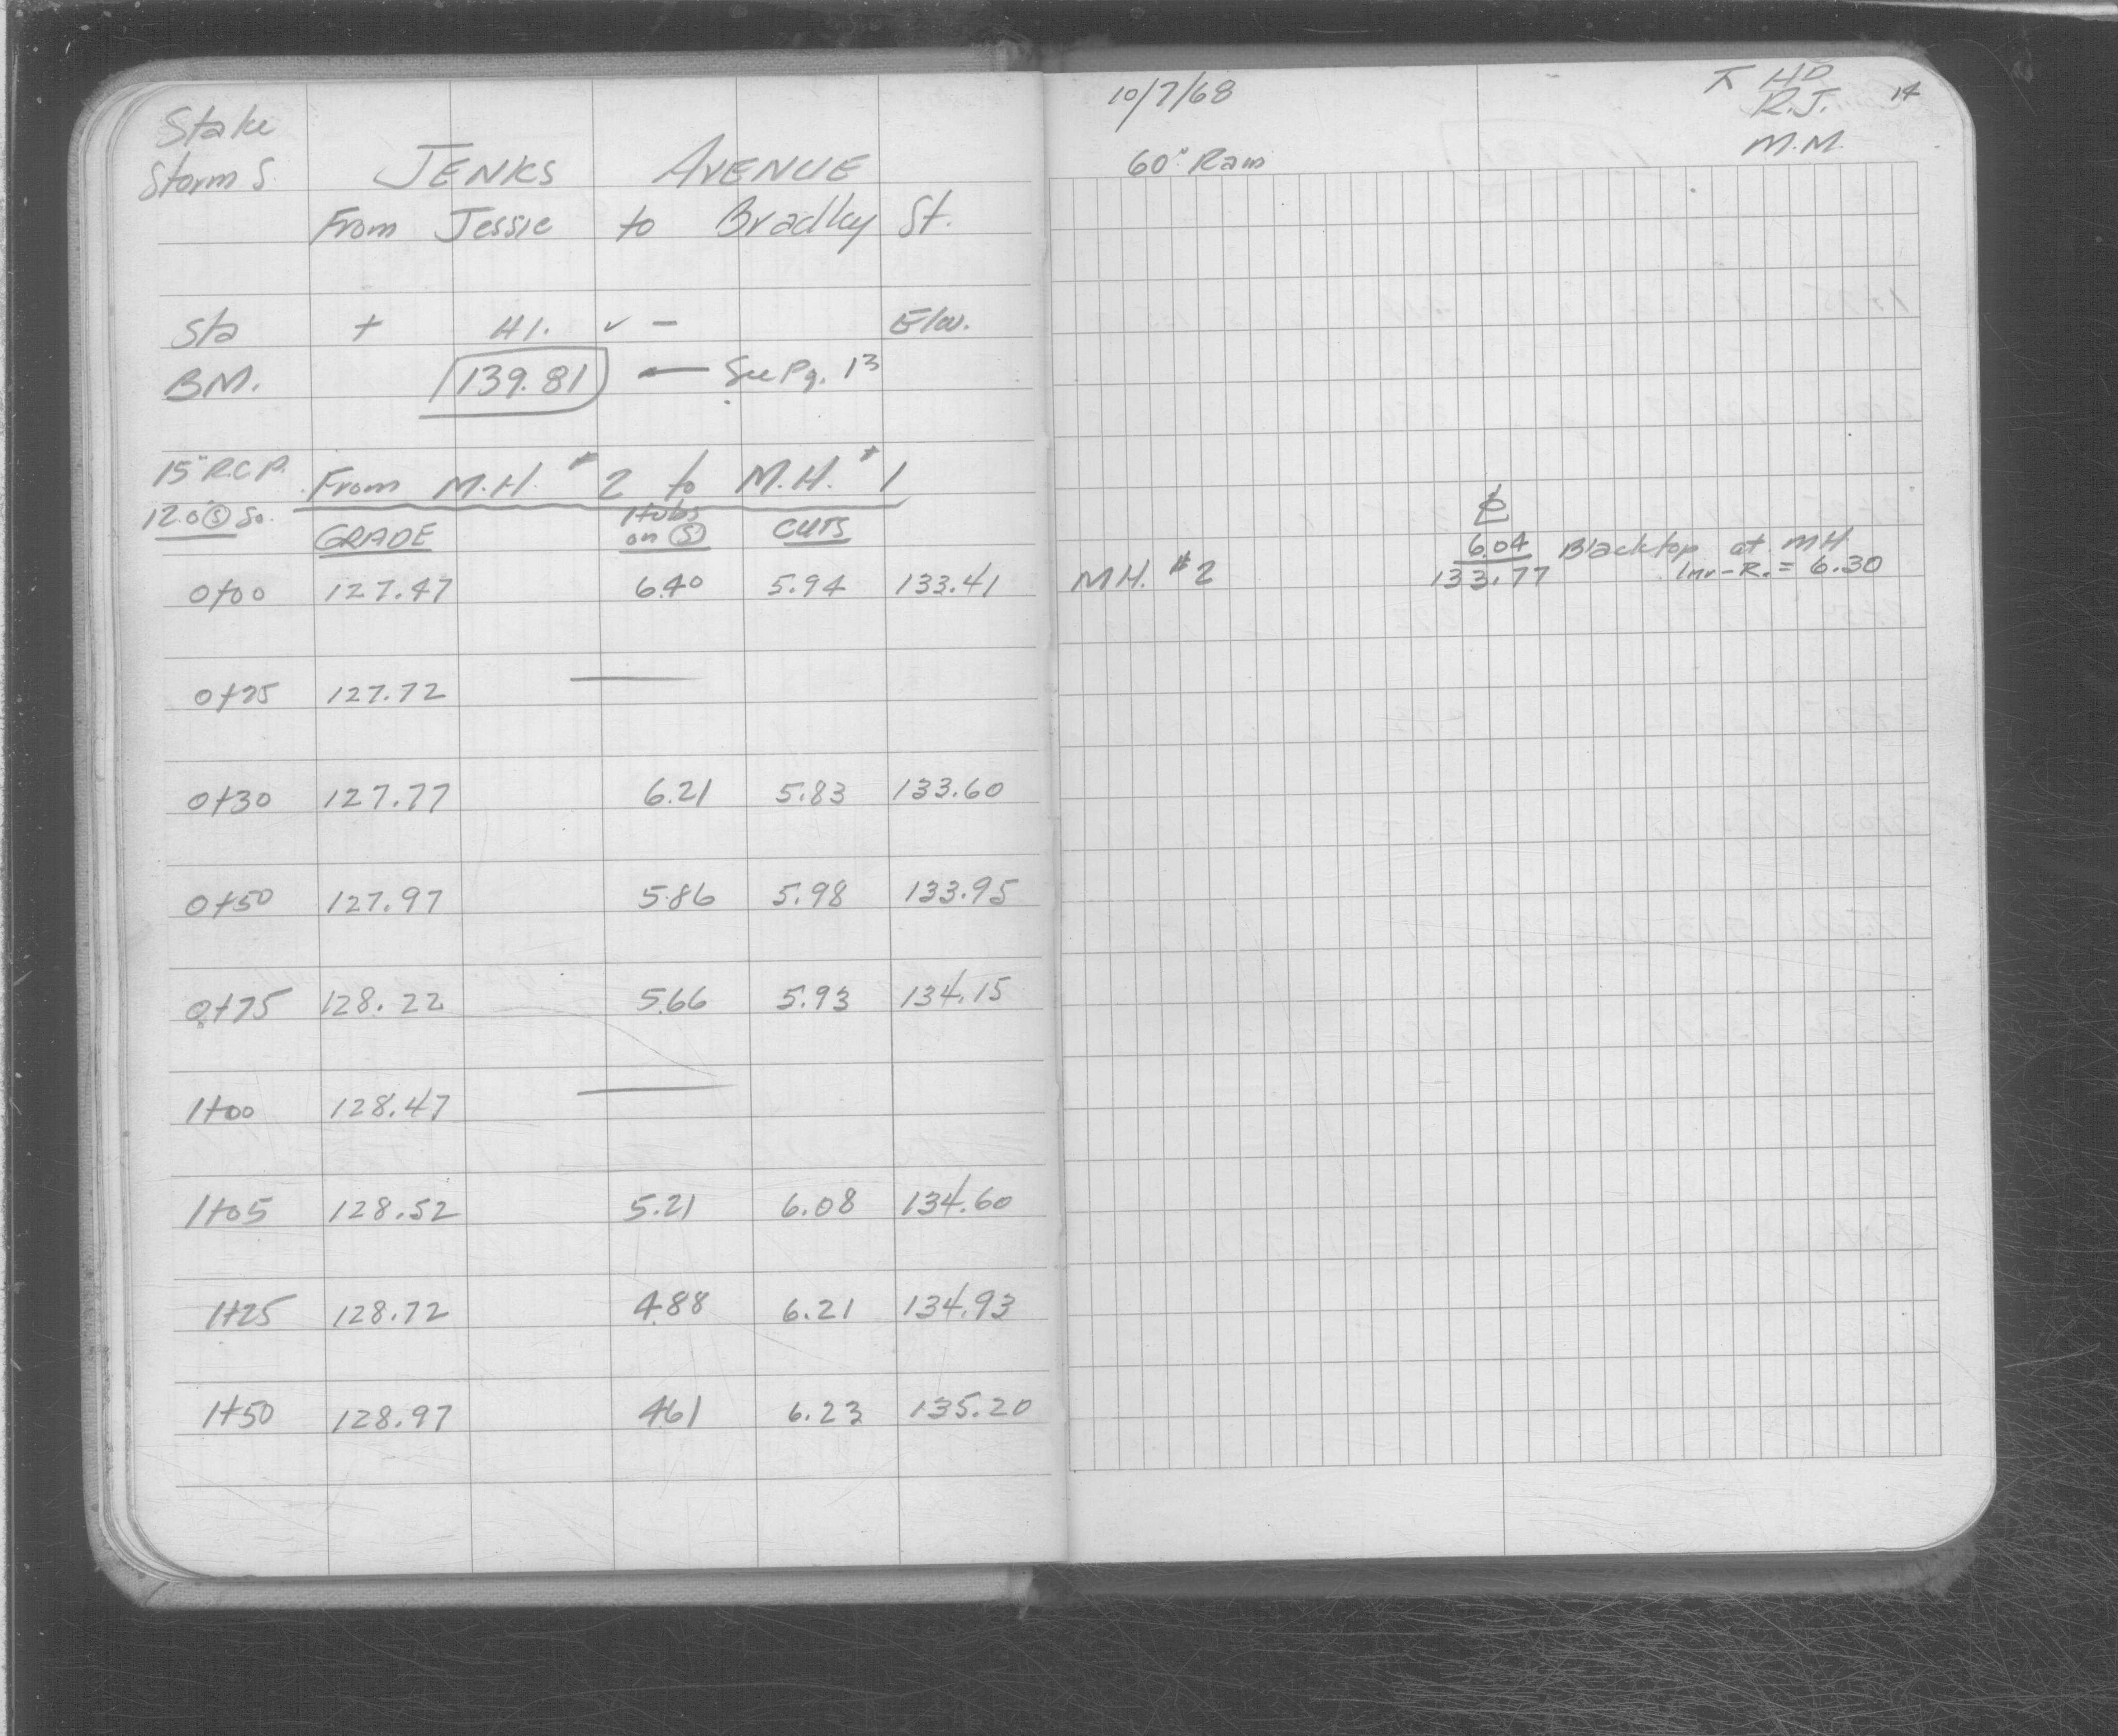 Stake
Storm S.
JENKS AVENUE
From Jessie to Bradley St.
Sta + H.I. ✓ - Elev.
BM. 139.81 ← See Pg. 13
15" R.C.P. From M.H. #2 to M.H. #1
12.0 Ⓢ So.
GRADE Hubs on Ⓢ CUTS
0+00 127.47 6.40 5.94 133.41
0+25 127.72 —
0+30 127.77 6.21 5.83 133.60
0+50 127.97 5.86 5.98 133.95
0+75 128.22 5.66 5.93 134.15
1+00 128.47 —
1+05 128.52 5.21 6.08 134.60
1+25 128.72 4.88 6.21 134.93
1+50 128.97 4.61 6.23 135.20
10/7/68
π HD 14
R.J.
M.M.
60° Rain
℄
6.04 Blacktop at MH
MH. #2 133.77 Inv-R. = 6.30